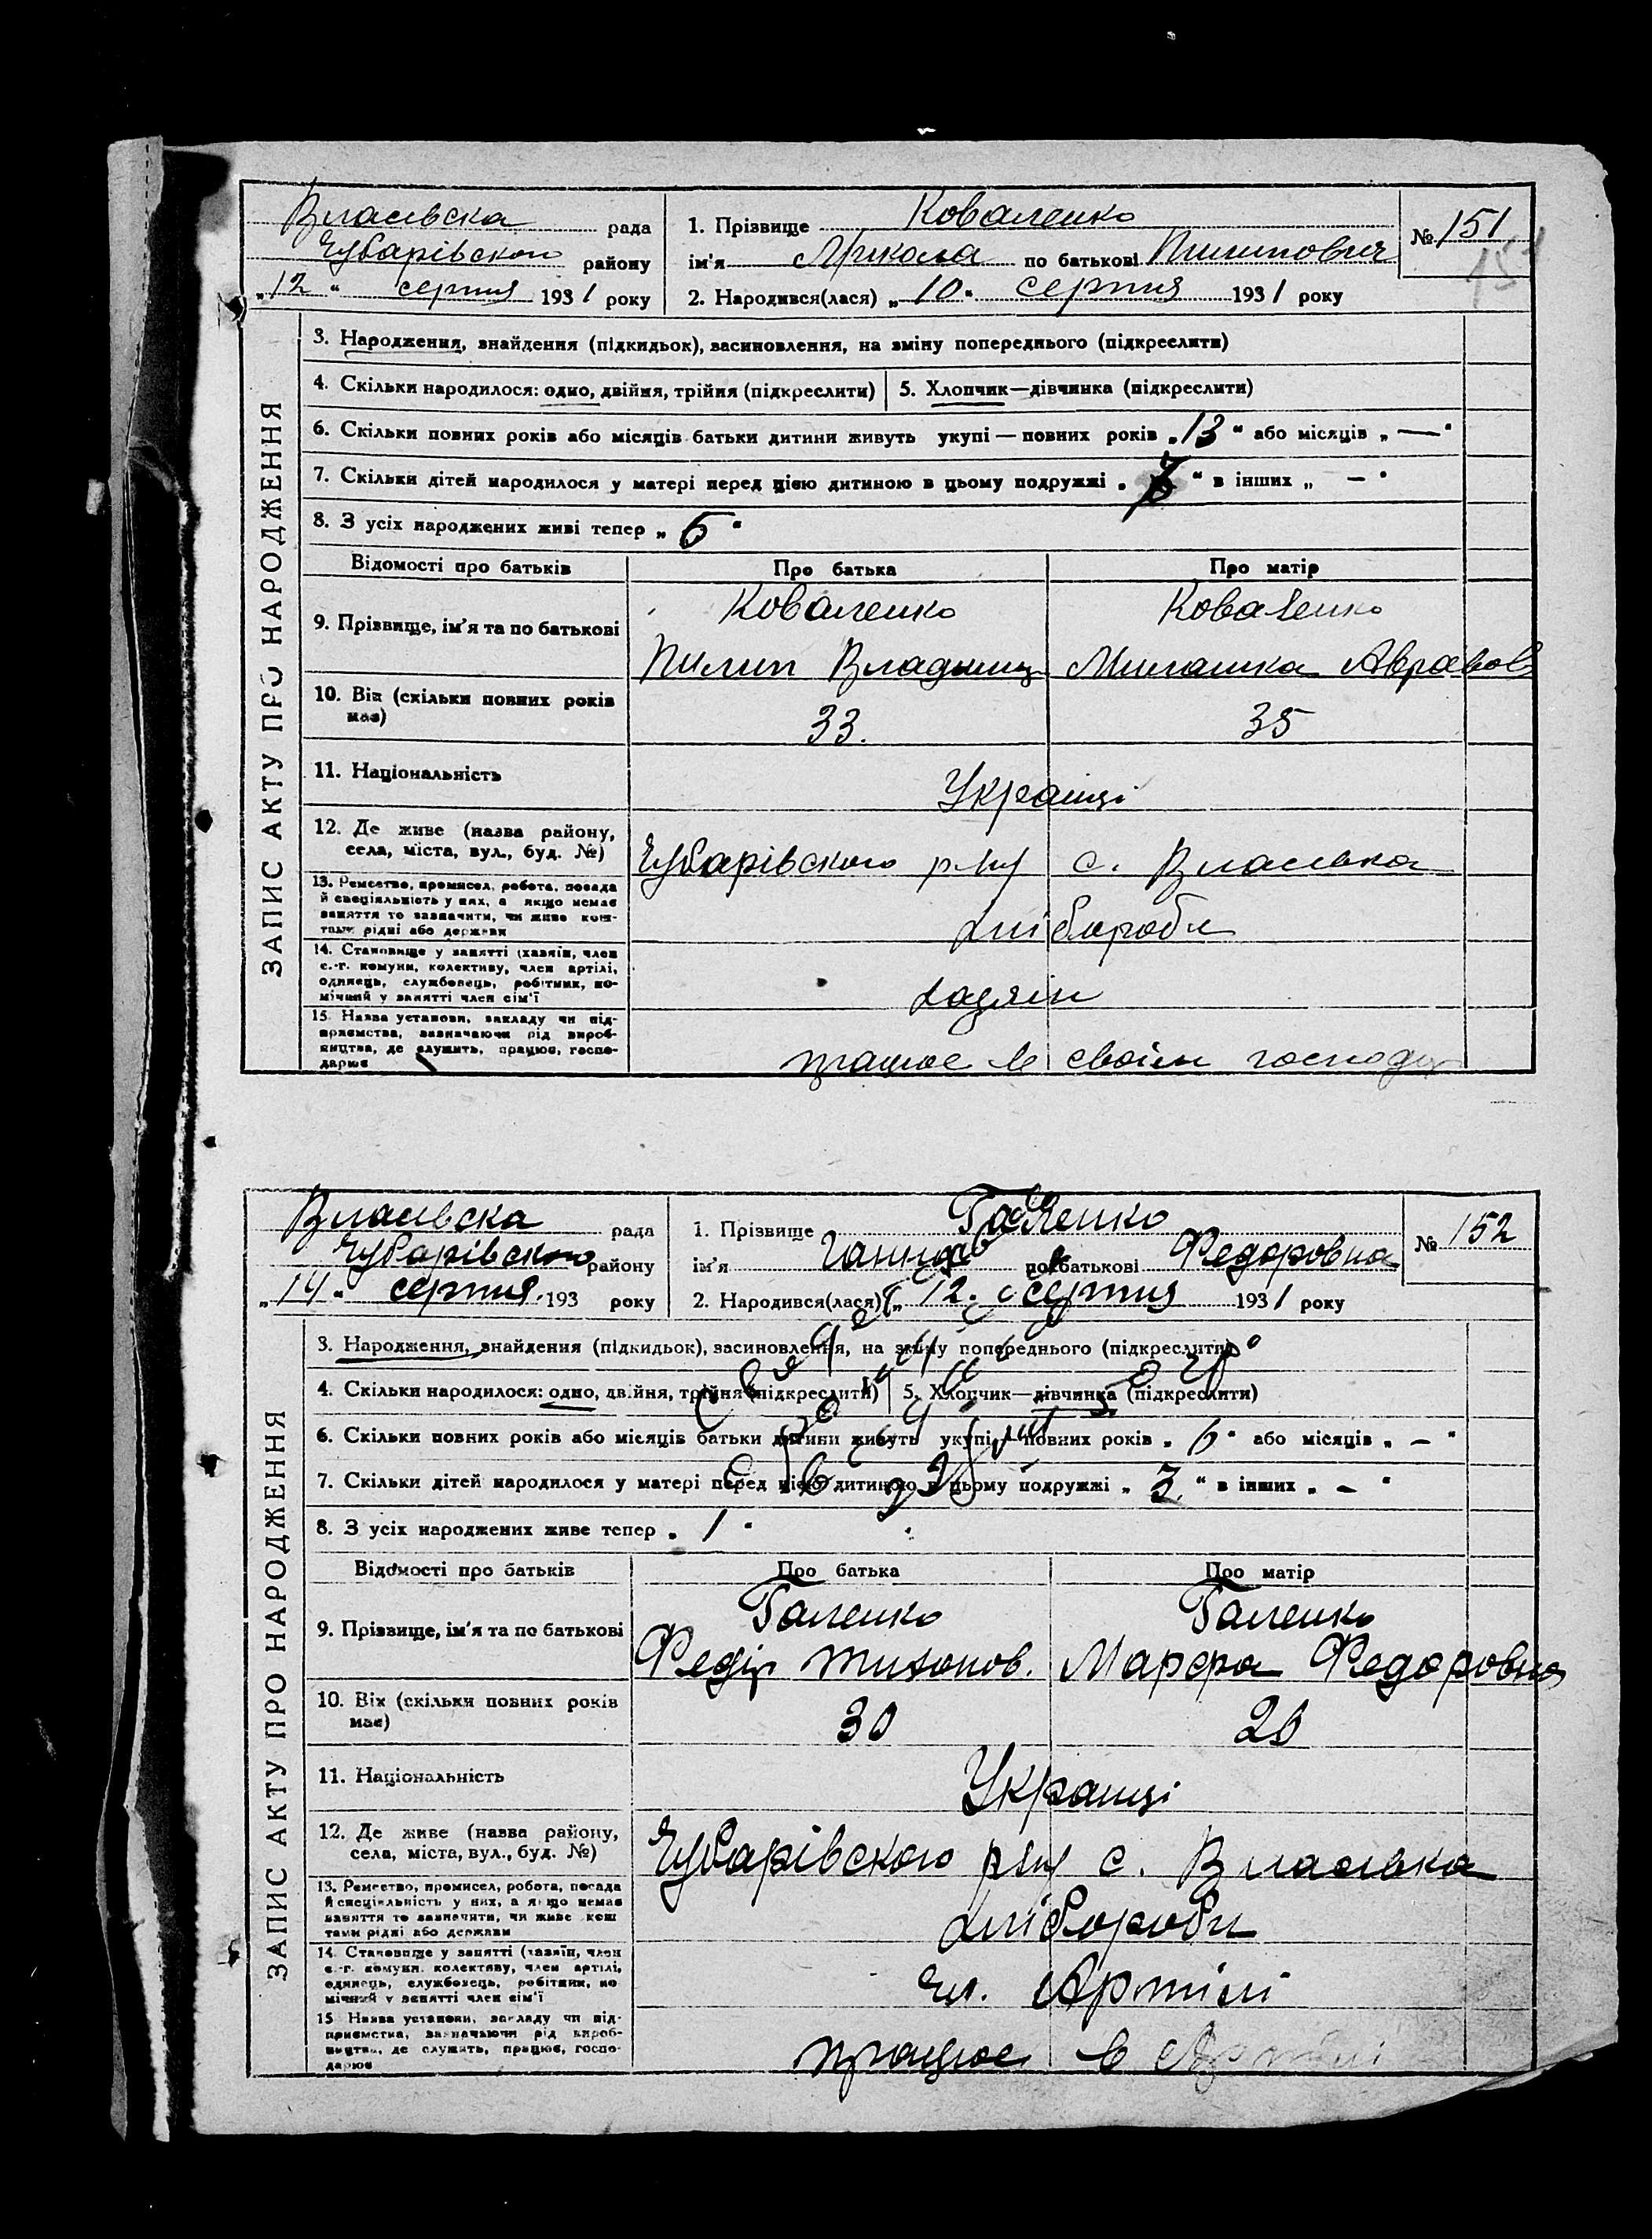 Власівска рада
Чубарівского району
„12“ серпня 1931 року
1. Прізвище Коваленко
ім'я Микола по батькові Пилипович
2. Народився(лася) „10“ серпня 1931 року
№ 151
ЗАПИС АКТУ ПРО НАРОДЖЕННЯ
3. Народження, знайдення (підкидьок), засиновлення, на зміну попереднього (підкреслити)
4. Скільки народилося: одно, двійня, трійня (підкреслити)
5. Хлопчик—дівчинка (підкреслити)
6. Скільки повних років або місяців батьки дитини живуть укупі — повних років „13“ або місяців „—“
7. Скільки дітей народилося у матері перед цією дитиною в цьому подружжі „ “ в інших „ — “
8. З усіх народжених живі тепер „5“
Відомості про батьків
Про батька
Про матір
9. Прізвище, ім'я та по батькові
Коваленко
Коваленко
Пилип
Авраамов
10. Вік (скільки повних років
має)
33.
35
11. Національність
Українці
12. Де живе (назва району,
села, міста, вул., буд. №)
Чубарівского р-ну с. Власівка
13. Ремество, промисел, робота, посада
й спеціяльність у них, а якщо немає
заняття то зазначити, чи живе кош-
тами рідні або держави
хлібороби
14. Становище у занятті (хазяїн, член
с.-г. комуни, колективу, член артілі,
одинець, службовець, робітник, по-
мічний у занятті член сім'ї
хазяїн
15. Назва установи, закладу чи під-
приємства, зазначаючи рід вироб-
ництва, де служить, працює, госпо-
дарює
працює в своїм господар
Власівска рада
Чубарівского району
„14“ серпня 193 року
1. Прізвище Галенко
ім'я Ганна по батькові Федоровна
2. Народився(лася) „12“ серпня 1931 року
№ 152
ЗАПИС АКТУ ПРО НАРОДЖЕННЯ
3. Народження, знайдення (підкидьок), засиновлення, на зміну попереднього (підкреслити)
4. Скільки народилося: одно, двійня, трійня (підкреслити)
5. Хлопчик—дівчинка (підкреслити)
6. Скільки повних років або місяців батьки дитини живуть укупі — повних років „6“ або місяців „—“
7. Скільки дітей народилося у матері перед цією дитиною в цьому подружжі „3.“ в інших „ — “
8. З усіх народжених живе тепер „1“
Відомості про батьків
Про батька
Про матір
9. Прізвище, ім'я та по батькові
Галенко
Галенко
Федір Тихонов.
Марфа Федоровна
10. Вік (скільки повних років
має)
30
26
11. Національність
Українці
12. Де живе (назва району,
села, міста, вул., буд. №)
Чубарівского р-ну с. Власівка
13. Ремество, промисел, робота, посада
й спеціяльність у них, а якщо немає
заняття то зазначити, чи живе кош
тами рідні або держави
хлібороби
14. Становище у занятті (хазяїн, член
с.-г. комуни, колективу, член артілі,
одинець, службовець, робітник, по
мічний у занятті член сім'ї
чл. Артілі
15 Назва установи, закладу чи під-
приємства, зазначаючи рід вироб-
ництва, де служить, працює, госпо-
дарює
працює в Артілі